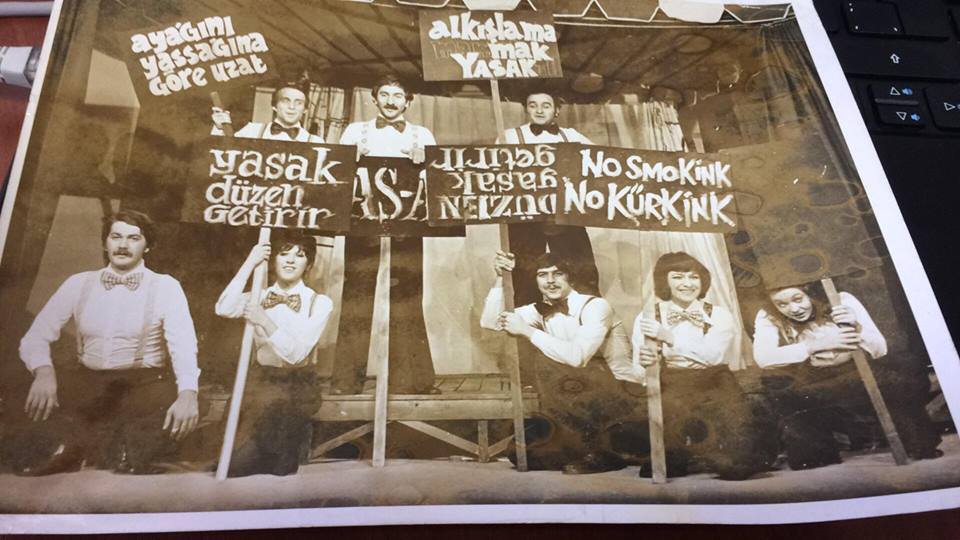 ayağını
yassağına
göre uzat
alkışlama
mak
YASAK
yasak
düzen
Getirir
AS-A
DÜZEN
yasak
getirir
No SmoKiNK
No KÜRKiNK